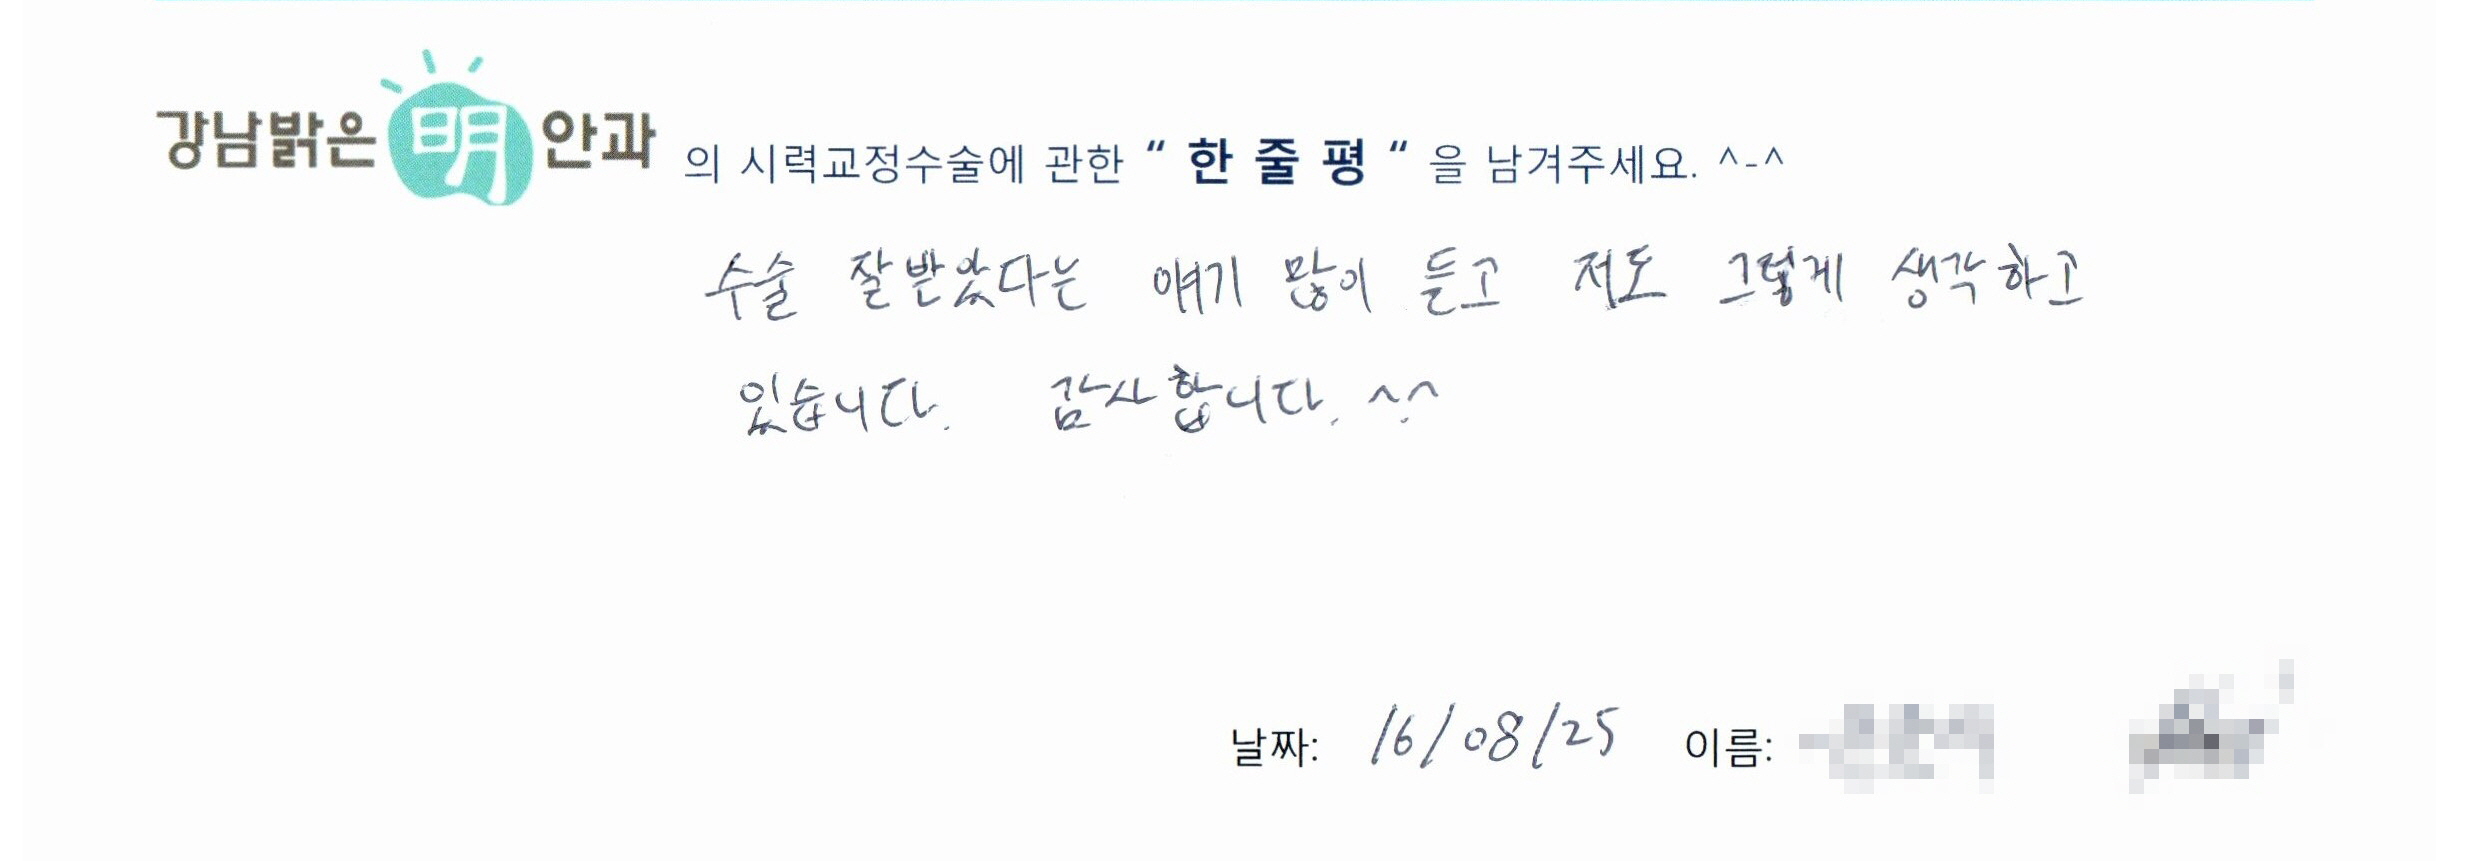 강남밝은明안과 의 시력교정수술에 관한 “ 한 줄 평 “ 을 남겨주세요. ^-^
수술 잘받았다는 얘기 많이 듣고 저도 그렇게 생각하고
있습니다. 감사합니다. ^.^
날짜: 16/08/25 이름: